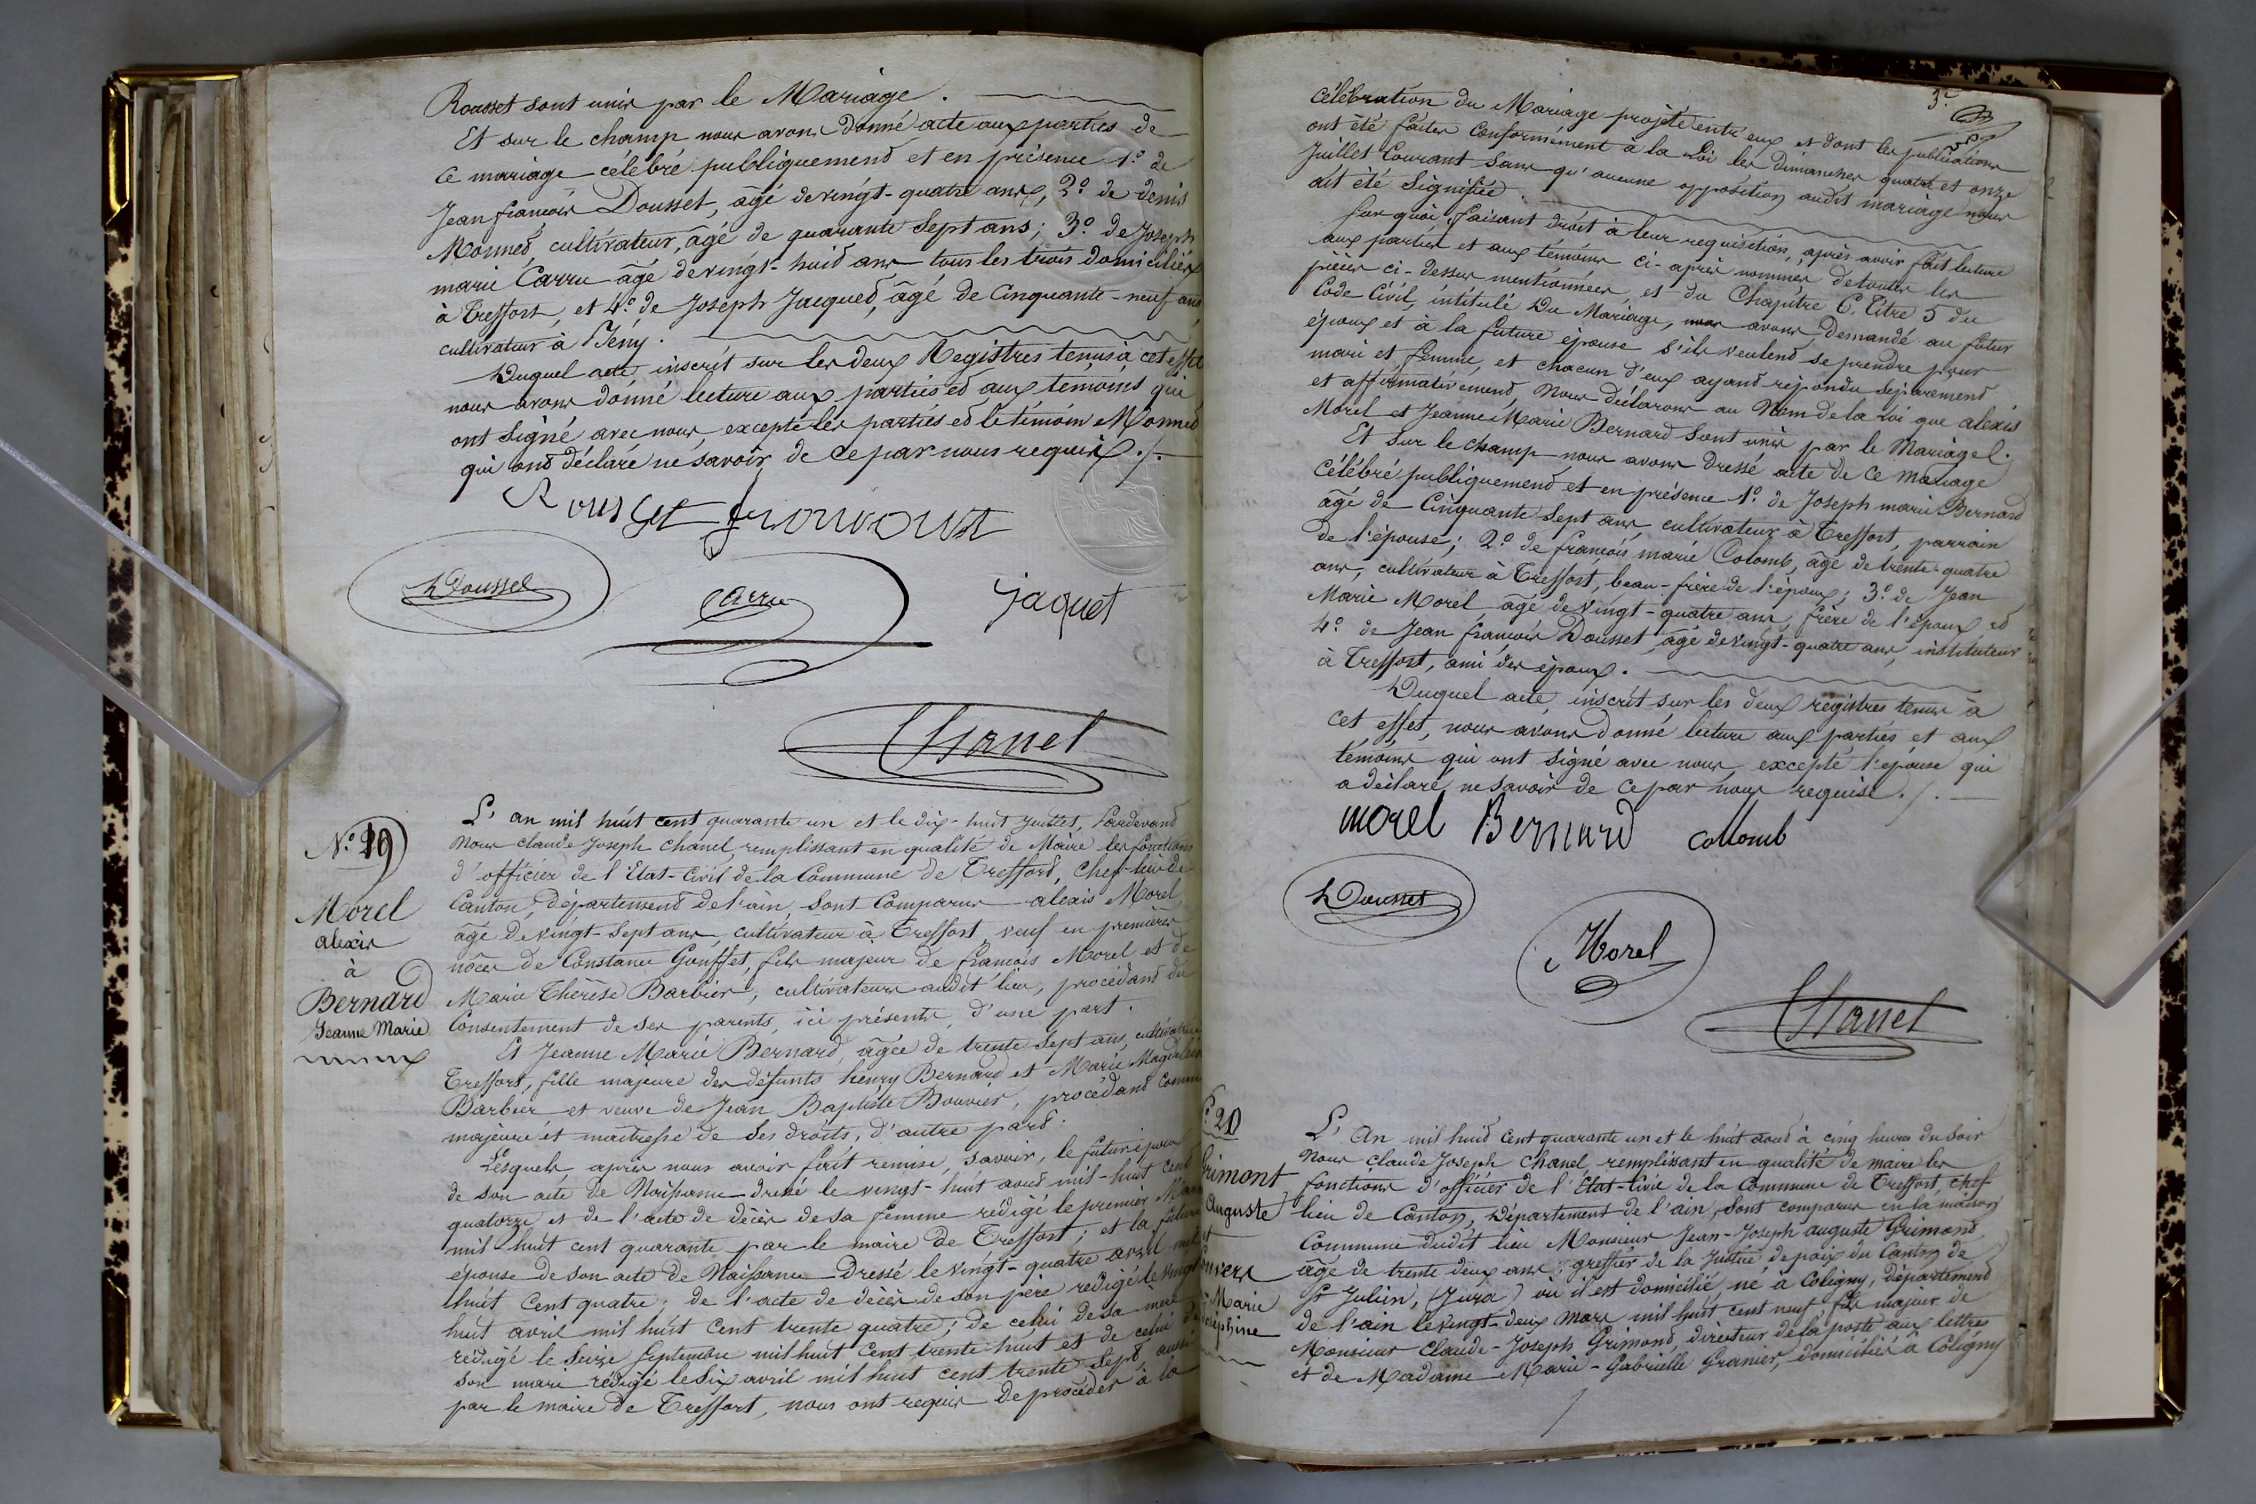 Rousset sont unis par le Mariage.
Et sur le champ nous avons donné acte aux parties de
ce mariage célébré publiquement et en présence 1.º de
Jean françois Dousset, âgé de vingt-quatre ans, 2.º de denis
Monnet, cultivateur, âgé de quarante sept ans; 3.º de Joseph
marie Carru âgé de vingt-huit ans tous les trois domiciliés
à Treffort, et 4.º de Joseph Jacquet, âgé de Cinquante-neuf ans,
cultivateur à Bény.
Duquel acte, inscrit sur les deux Registres tenus à cet effet
nous avons donné lecture aux parties et aux témoins qui
ont signé avec nous, excepté les parties et le témoin Monnet
qui ont déclaré ne savoir, de ce par nous requis ./.
Rousset
DDousset
Carru
jaquet
Chanel
N.º 19
Morel
alexis
à
Bernard
Jeanne Marie
L'an mil huit cent quarante un et le dix-huit Juillet, Pardevant
Nous claude Joseph Chanel, remplissant en qualité de Maire les fonctions
d'officier de l'Etat-Civil de la Commune de Treffort, chef-lieu de
Canton, département de l'ain, sont Comparus alexis Morel,
âgé de vingt-sept ans, cultivateur à Treffort, veuf en premières
nôces de Constance Gouffet, fils majeur de françois Morel et de
Marie Thérèse Barbier, cultivateurs audit lieu, procédant du
Consentement de ses parents, ici présents, d'une part.
Et Jeanne Marie Bernard, âgée de trente sept ans, cultivatrice
Treffort, fille majeure des défunts henry Bernard et Marie Magdelaine
Barbier et veuve de Jean Baptiste Bouvier, procédant Comme
majeure et maîtresse de ses droits, d'autre part.
Lesquels, après nous avoir fait remise, savoir, le futur époux
de son acte de Naissance dressé le vingt-huit aout mil-huit cent
quatorze et de l'acte de décès de sa femme rédigé le premier
mil huit cent quarante par le maire de Treffort; et la future
épouse de son acte de Naissance Dressé le vingt-quatre avril mil
huit Cent quatre; de l'acte de décès de son père rédigé le vingt
huit avril mil huit Cent trente quatre; de celui de sa mère
rédigé le Seize Septembre mil huit Cent trente huit et de celui de
son mari rédigé le six avril mil huit cent trente sept aussi
par le maire de Treffort, nous ont requis De procéder à la
3.e
Célébration du Mariage projeté entr'eux et dont les publications
ont été faites Conformément à la Loi les dimanches quatre et onze
Juillet Courant sans qu'aucune opposition audit mariage nous
ait été signifiée.
Sur quoi, faisant droit à leur requisition, après avoir fait lecture
aux parties et aux témoins ci-après nommés de toutes les
pièces ci-dessus mentionnées, et du Chapitre 6. Titre 5 du
Code Civil, intitulé Du Mariage, nous avons Demandé au futur
époux et à la future épouse s'ils veulent se prendre pour
mari et femme, et chacun d'eux ayant répondu séparement
et affirmativement, Nous Déclarons au Nom de la Loi que alexis
Morel et Jeanne Marie Bernard sont unis par le Mariage.
Et sur le champ nous avons dressé acte de Ce mariage
célébré publiquement et en présence 1.º de Joseph marie Bernard
âgé de Cinquante sept ans, cultivateur à Treffort, parrain
de l'épouse; 2.º de françois marie Colomb, âgé de trente-quatre
ans, cultivateur à Treffort, beau-frère de l'époux; 3.º de Jean
Marie Morel âgé de vingt-quatre ans, frère de l'époux et
4.º de Jean françois Dousset, âgé de vingt-quatre ans, instituteur
à Treffort, ami des époux.
Duquel acte, inscrit sur les deux registres tenus à
cet effet, nous avons donné lecture aux parties et aux
témoins qui ont signé avec nous, excepté l'épouse qui
a déclaré ne savoir de ce par nous requise. /.
morel Bernard collomb
DDousset
Morel
Chanel
20
Grimont
Auguste
Marie
L'An mil huit Cent quarante un et le huit aout à cinq heures du soir
Nous claude Joseph Chanel, remplissant en qualité de maire les
fonctions d'officier de l'Etat-Civil de la Commune de Treffort, chef
lieu de Canton, Département de l'ain, sont comparus en la maison
Commune dudit lieu Monsieur Jean-Joseph auguste Grimond,
âgé de trente deux ans, greffier de la Justice de paix du Canton de
St Julien, (Jura) où il est domicilié, né à Coligny, département
de l'ain le vingt-deux Mars mil huit cent neuf, fils majeur de
Monsieur Claude-Joseph Grimond, directeur de la poste aux lettres
et de Madame Marie-Gabrielle Granier, domiciliés à Coligny